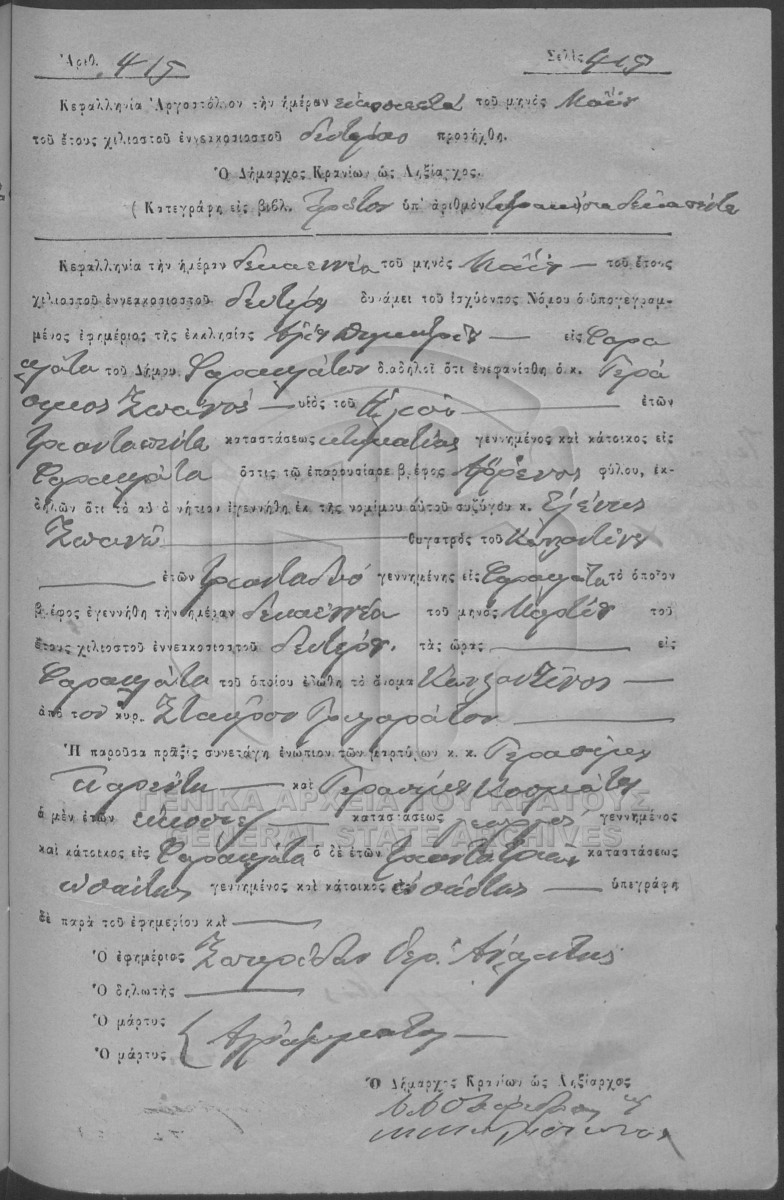 Ἀριθ. 415 Σελὶς 415
Κεφαλληνία Ἀργοστόλιον τὴν ἡμέραν τοῦ μηνὸς Μαΐου
τοῦ ἔτους χιλιοστοῦ ἐννεακοσιοστοῦ δευτέρου προσήχθη.
Ὁ Δήμαρχος Κρανίων ὡς Ληξίαρχος.
(Κατεγράφη εἰς βιβλ. Πρῶτον ὑπ' ἀριθμὸν τετρακόσια δεκαπέντε
Κεφαλληνία τὴν ἡμέραν δεκαεννέα τοῦ μηνὸς Μαΐου τοῦ ἔτους
χιλιοστοῦ ἐννεακοσιοστοῦ δευτέρου δυνάμει τοῦ ἰσχύοντος Νόμου ὁ ὑπογεγραμ-
μένος ἐφημέριος τῆς ἐκκλησίας Ἁγίου Δημητρίου εἰς Φαρα
κλᾶτα τοῦ Δήμου Φαρακλάτων δηλοῖ ὅτι ἐνεφανίσθη ὁ κ. Γερά
σιμος υἱὸς τοῦ Ἠλιοῦ ἐτῶν
τριανταπέντε καταστάσεως κτηματίας γεννημένος καὶ κάτοικος εἰς
Φαρακλάτα ὅστις τῷ ἐπαρουσίασε βρέφος ἄρρενος φύλου, ἐκ-
δηλῶν ὅτι τὸ αὐτὸ νήπιον ἐγεννήθη ἐκ τῆς νομίμου αὐτοῦ συζύγου κ. Ελένης
θυγατρὸς τοῦ Κωνσταντίνου
ἐτῶν τριανταδύο γεννημένης εἰς Φαρακλάτα τὸ ὁποῖον
βρέφος ἐγεννήθη τὴν ἡμέραν δεκαεννέα τοῦ μηνὸς Μαρτίου τοῦ
ἔτους χιλιοστοῦ ἐννεακοσιοστοῦ δευτέρου. τὰς ὥρας εἰς
Φαρακλάτα τοῦ ὁποίου ἐδώθη τὸ ὄνομα Κωνσταντῖνος
ἀπὸ τὸν κυρ. Σταῦρον Γρηγοράτον
Ἡ παροῦσα πρᾶξις συνετάγη ἐνώπιον τῶν μαρτύρων κ. κ. Γερασίμου
καὶ Γερασίμου Κοσμάτου
ὁ μὲν ἐτῶν καταστάσεως γεωργός γεννημένος
καὶ κάτοικος εἰς Φαρακλάτα ὁ δὲ ἐτῶν τριαντατριῶν καταστάσεως
ὡσαύτως γεννημένος καὶ κάτοικος ὡσαύτως ὑπεγράφη
δὲ παρὰ τοῦ ἐφημερίου καὶ
ΓΕΝΙΚΑ ΑΡΧΕΙΑ ΤΟΥ ΚΡΑΤΟΥΣ
GENERAL STATE ARCHIVES
Ὁ ἐφημέριος Σπυρίδων
Ὁ δηλωτὴς
Ὁ μάρτυς
Ὁ μάρτυς Ἀγράμματοι
Ὁ Δήμαρχος Κρανίων ὡς Ληξίαρχος